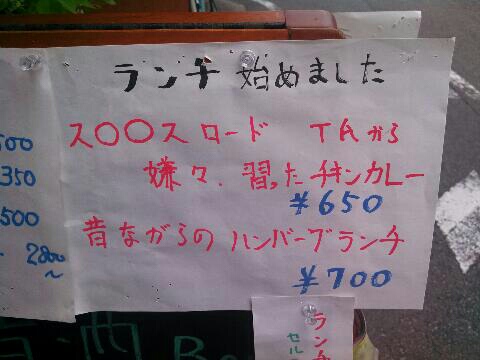 ランチ 始めました
ス〇〇スロード TKから
嫌々、習ったチキンカレー
¥650
昔ながらのハンバーグランチ
¥700
500
350
500
2800
~
ランチ
セル